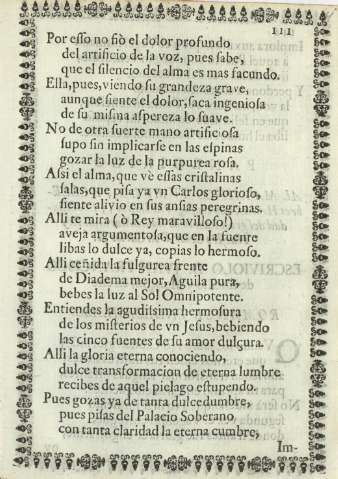 111
Por esso no fiò el dolor profundo
del artificio de la voz, pues sabe,
que el silencio del alma es mas facundo.
Ella, pues, viendo su grandeza grave,
aunque siente el dolor, saca ingeniosa
de su misma aspereza lo suave.
No de otra suerte mano artificiosa
supo sin implicarse en las espinas
gozar la luz de la purpurea rosa.
Assi el alma, que vè essas cristalinas
salas, que pisa ya vn Carlos glorioso,
siente alivio en sus ansias peregrinas.
Alli te mira (ò Rey maravilloso!)
aveja argumentosa, que en la fuente
libas lo dulce ya, copias lo hermoso.
Alli ceñida la fulgurea frente
de Diadema mejor, Aguila pura,
bebes la luz al Sol Omnipotente.
Entiendes la agudissima hermosura
de los misterios de vn Jesus, bebiendo
las cinco fuentes de su amor dulçura.
Alli la gloria eterna conociendo,
dulce transformacion de eterna lumbre
recibes de aquel pielago estupendo.
Pues gozas ya de tanta dulcedumbre,
pues pisas del Palacio Soberano
con tanta claridad la eterna cumbre,
Im-